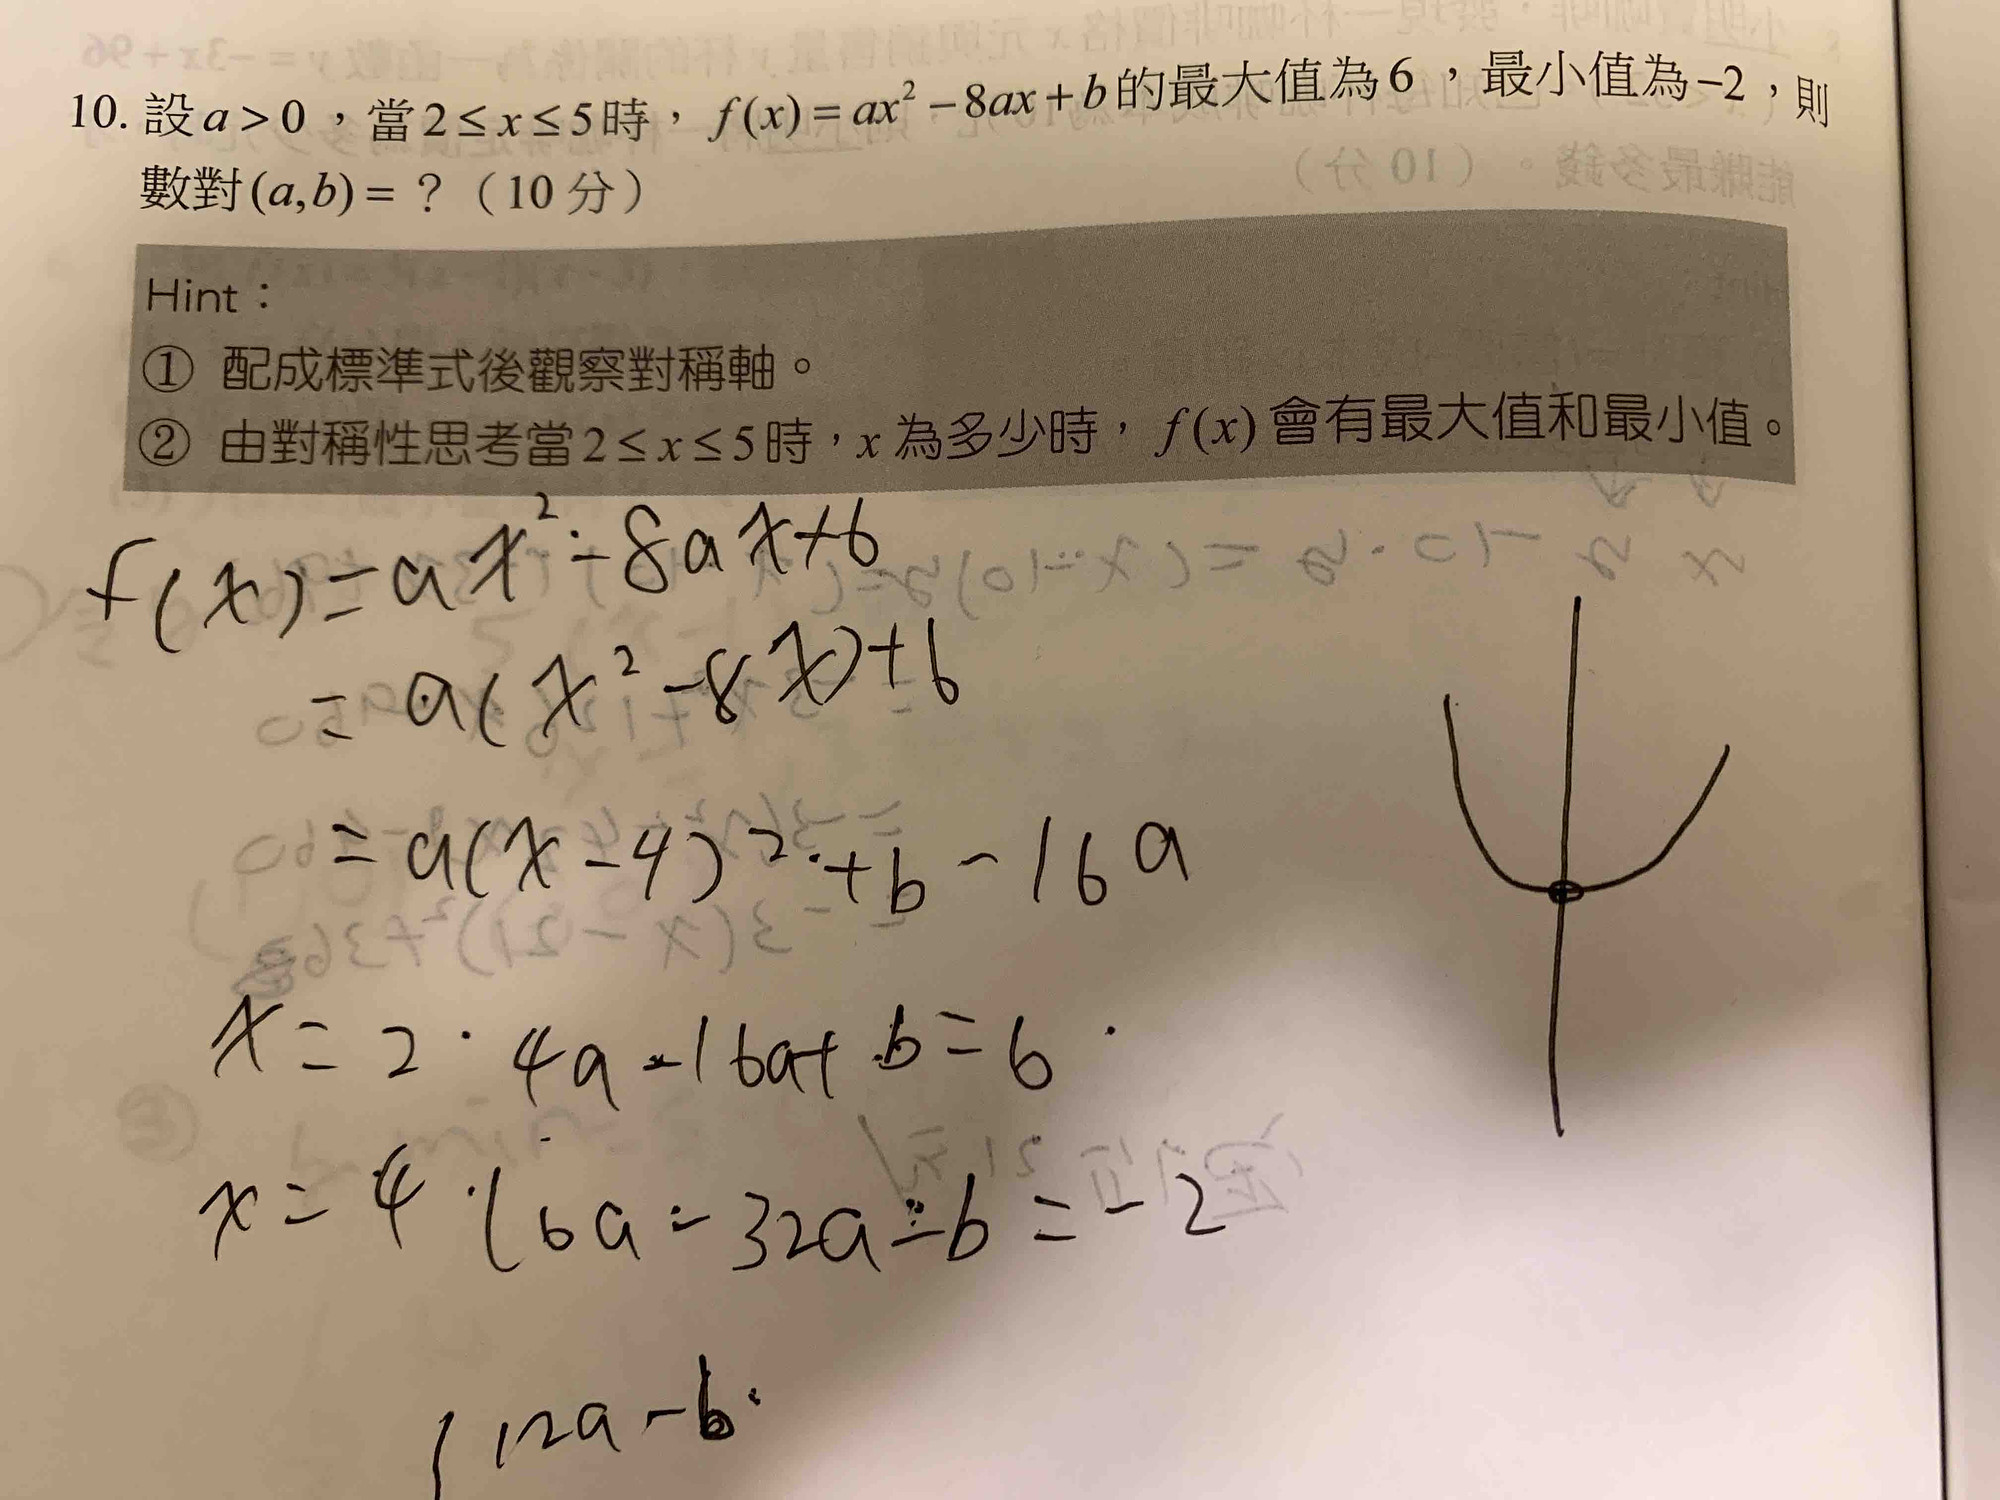 10. 設a>0，當2≤x≤5時，f(x)=ax²−8ax+b的最大值為6，最小值為−2，則
數對(a,b)=？（10分）
Hint：
① 配成標準式後觀察對稱軸。
② 由對稱性思考當2≤x≤5時，x為多少時，f(x)會有最大值和最小值。
f(x)=ax²-8ax+b
=a(x²-8x)+b
=a(x-4)²+b-16a
x=2. 4a-16a+b=6
x=4. 16a-32a-b=-2
12a-b